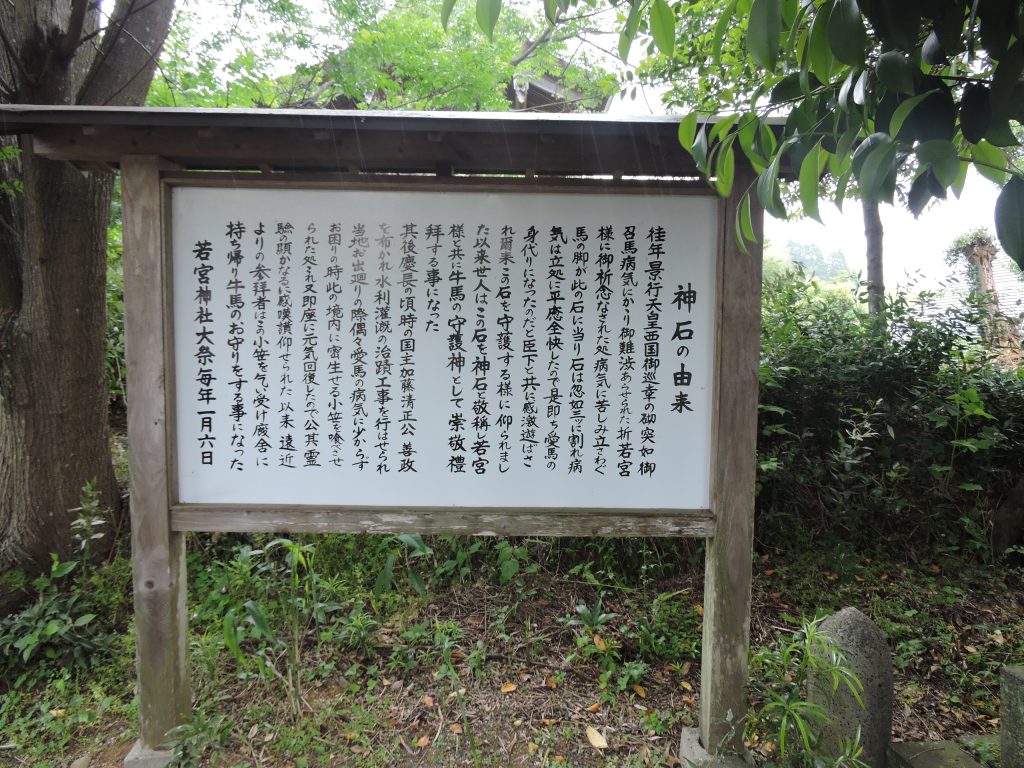 神石の由来
往年景行天皇西国御巡幸の砌突如御
召馬病気にかり御難渋あらせられた折若宮
様に御祈念なされた処病気に苦しみ立さわぐ
馬の脚が此の石に当り石は忽如三ッに割れ病
気は立処に平癒全快したので是即ち愛馬の
身代りになったのだと臣下と共に感激遊ばさ
れ爾来この石を守護する様に仰られまし
た以来世人はこの石を神石と敬称し若宮
様と共に牛馬の守護神として崇敬禮
拜する事になった
其後慶長の頃時の国主加藤清正公善政
を布かれ水利灌漑の治蹟工事を行はせられ
当地お出廻りの際偶々愛馬の病気に少からず
お困りの時此の境内に密生せる小笹を喰させ
られた処され又即座に元気回復したので公其霊
験の顕かなるに感嘆讃仰せられた以来遠近
よりの参拜者はこの小笹を乞ひ受け厩舎に
持ち帰り牛馬のお守りをする事になった
若宮神社大祭毎年一月六日